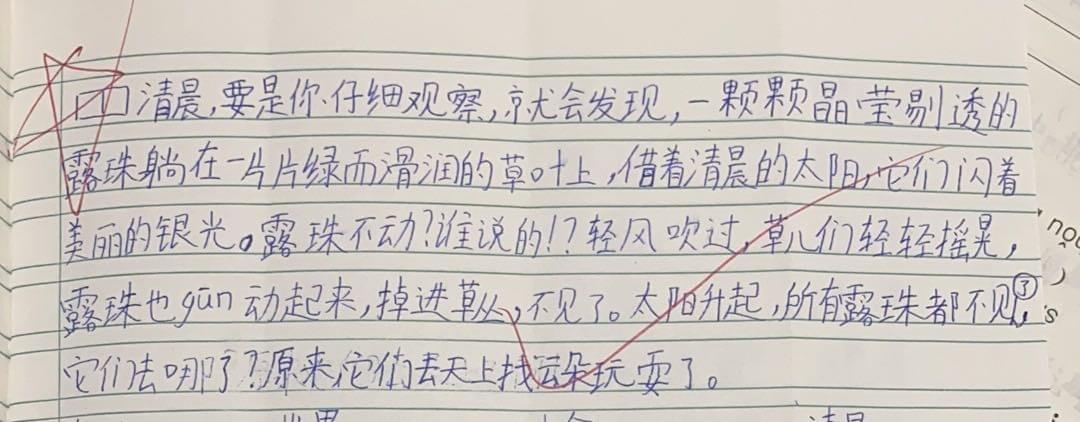 清晨,要是你仔细观察,就会发现,一颗颗晶莹剔透的
露珠躺在一片片绿而滑润的草叶上,借着清晨的太阳,它们闪着
美丽的银光。露珠不动?谁说的!?轻风吹过,草儿们轻轻摇晃,
露珠也gǔn动起来,掉进草丛,不见了。太阳升起,所有露珠都不见③,
它们去哪了?原来,它们去天上找云朵玩耍了。